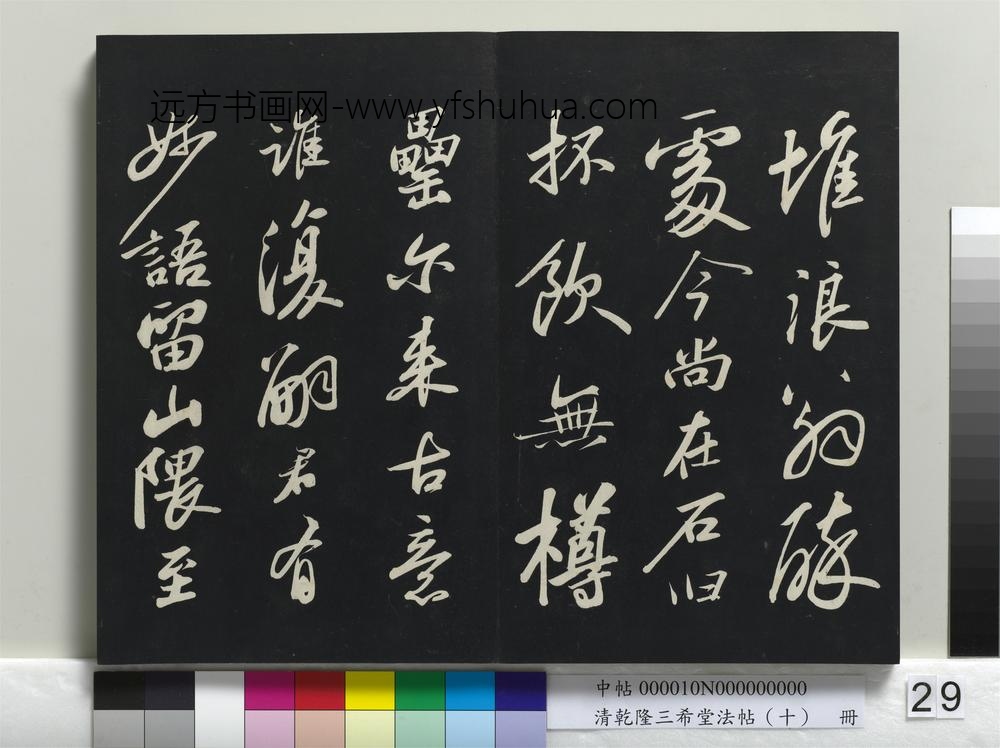 堆浪翁醉
處今尚在石臼
抔飲無樽
罍尓来古意
誰復嗣君有
妙語留山隈至
远方书画网-www.yfshuhua.com
中帖 000010N000000000
清乾隆三希堂法帖（十） 冊
29